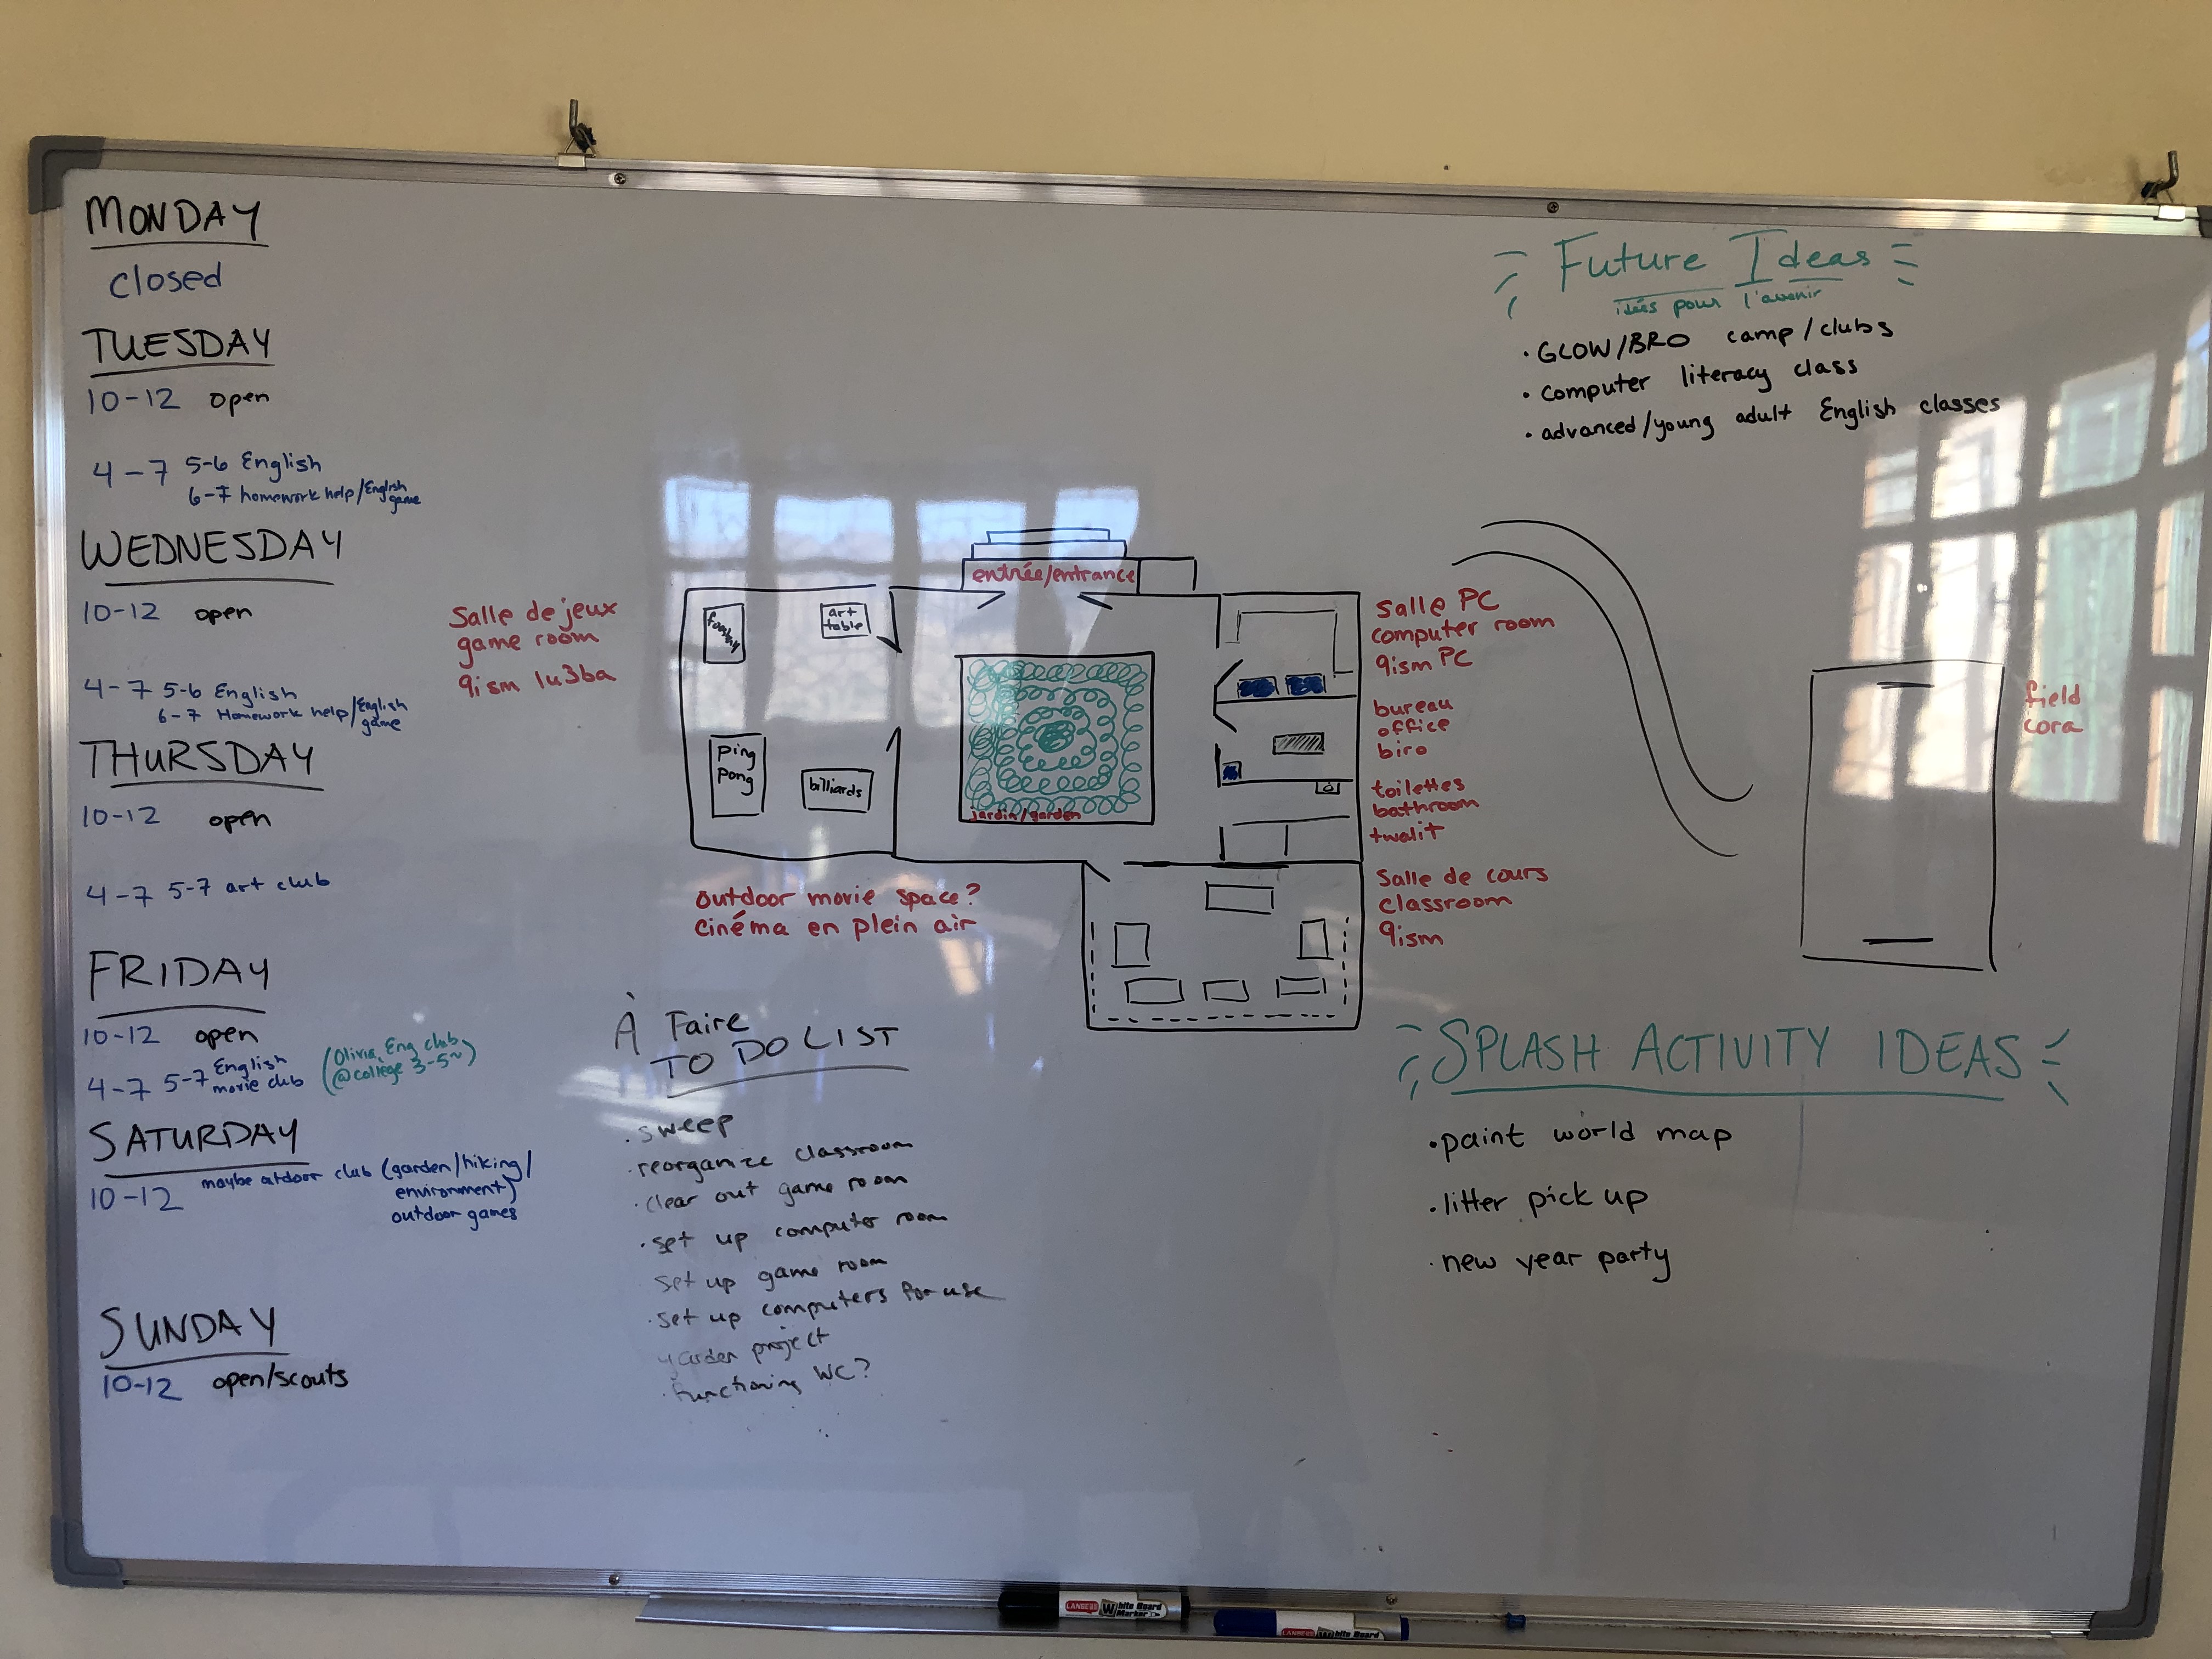 MONDAY
closed
TUESDAY
10-12 open
4-7 5-6 English
6-7 homework help/English
game
WEDNESDAY
10-12 open
4-7 5-6 English
6-7 Homework help/English
game
THURSDAY
10-12 open
4-7 5-7 art club
FRIDAY
10-12 open
4-7 5-7 English
movie club
(Olivia Eng club
@college 3-5~)
SATURDAY
10-12 maybe outdoor club (garden/hiking/
environment)
outdoor games
SUNDAY
10-12 open/scouts
Salle de jeux
game room
9ism lu3ba
entrée/entrance
art
table
ping
pong
billiards
jardin/garden
outdoor movie space?
cinéma en plein air
Salle PC
computer room
9ism PC
bureau
office
biro
toilettes
bathroom
twalit
Salle de cours
classroom
9ism
field
cora
À Faire
TO DO LIST
· sweep
· reorganize classroom
· clear out game room
· set up computer room
set up game room
· set up computers for use
garden project
· functioning WC?
Future Ideas
idées pour l'avenir
· GLOW/BRO camp/clubs
· computer literacy class
· advanced/young adult English classes
SPLASH ACTIVITY IDEAS
· paint world map
· litter pick up
· new year party
LANSEUS White Board
Marker
LANSEUS White Board